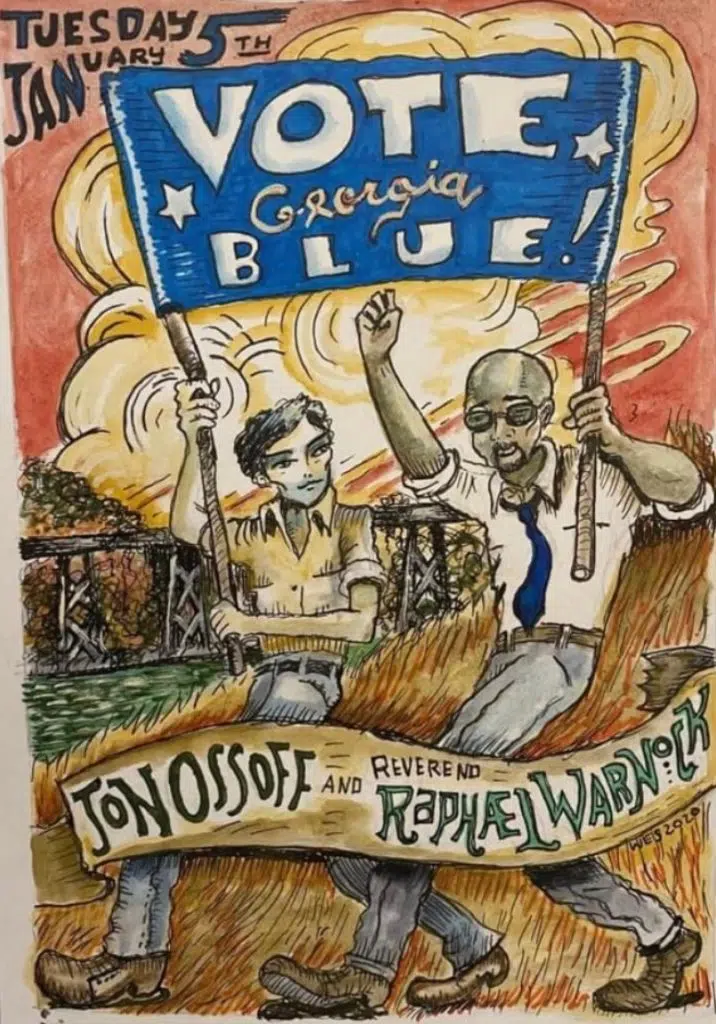 TUESDAY 5TH
JANUARY
VOTE
Georgia
BLUE!
JON OSSOFF AND REVEREND
RAPHÆL WARNOCK
WES 2020